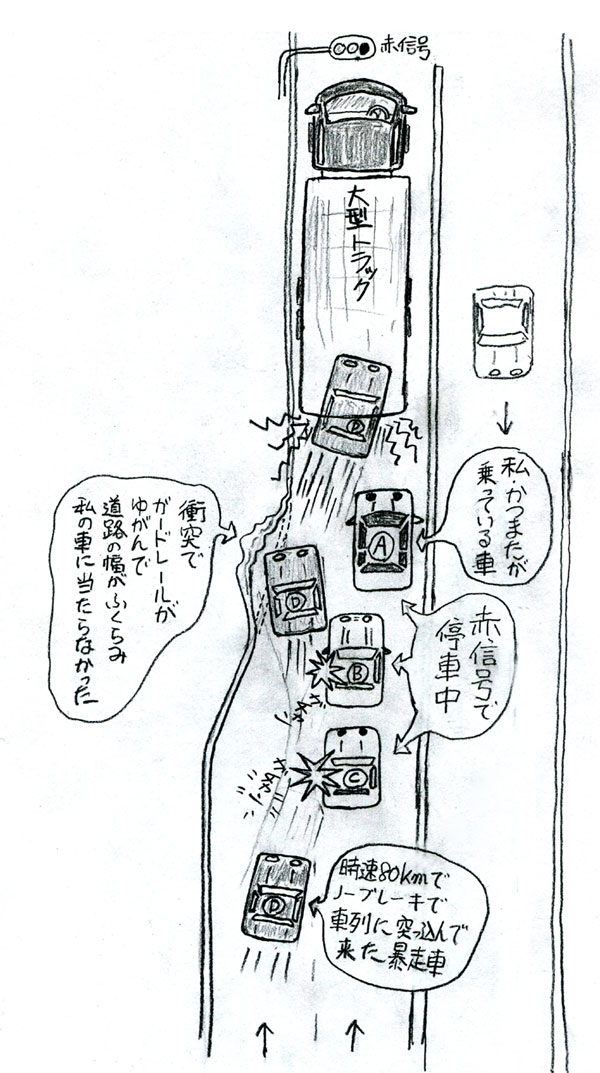 赤信号
大型トラック
D
私・かつまたが
乗っている車
A
衝突で
ガードレールが
ゆがんで
道路の幅がふくらみ
私の車に当たらなかった
D
赤信号で
停車中
B
C
D
時速80kmで
ノーブレーキで
車列に突っ込んで
来た暴走車